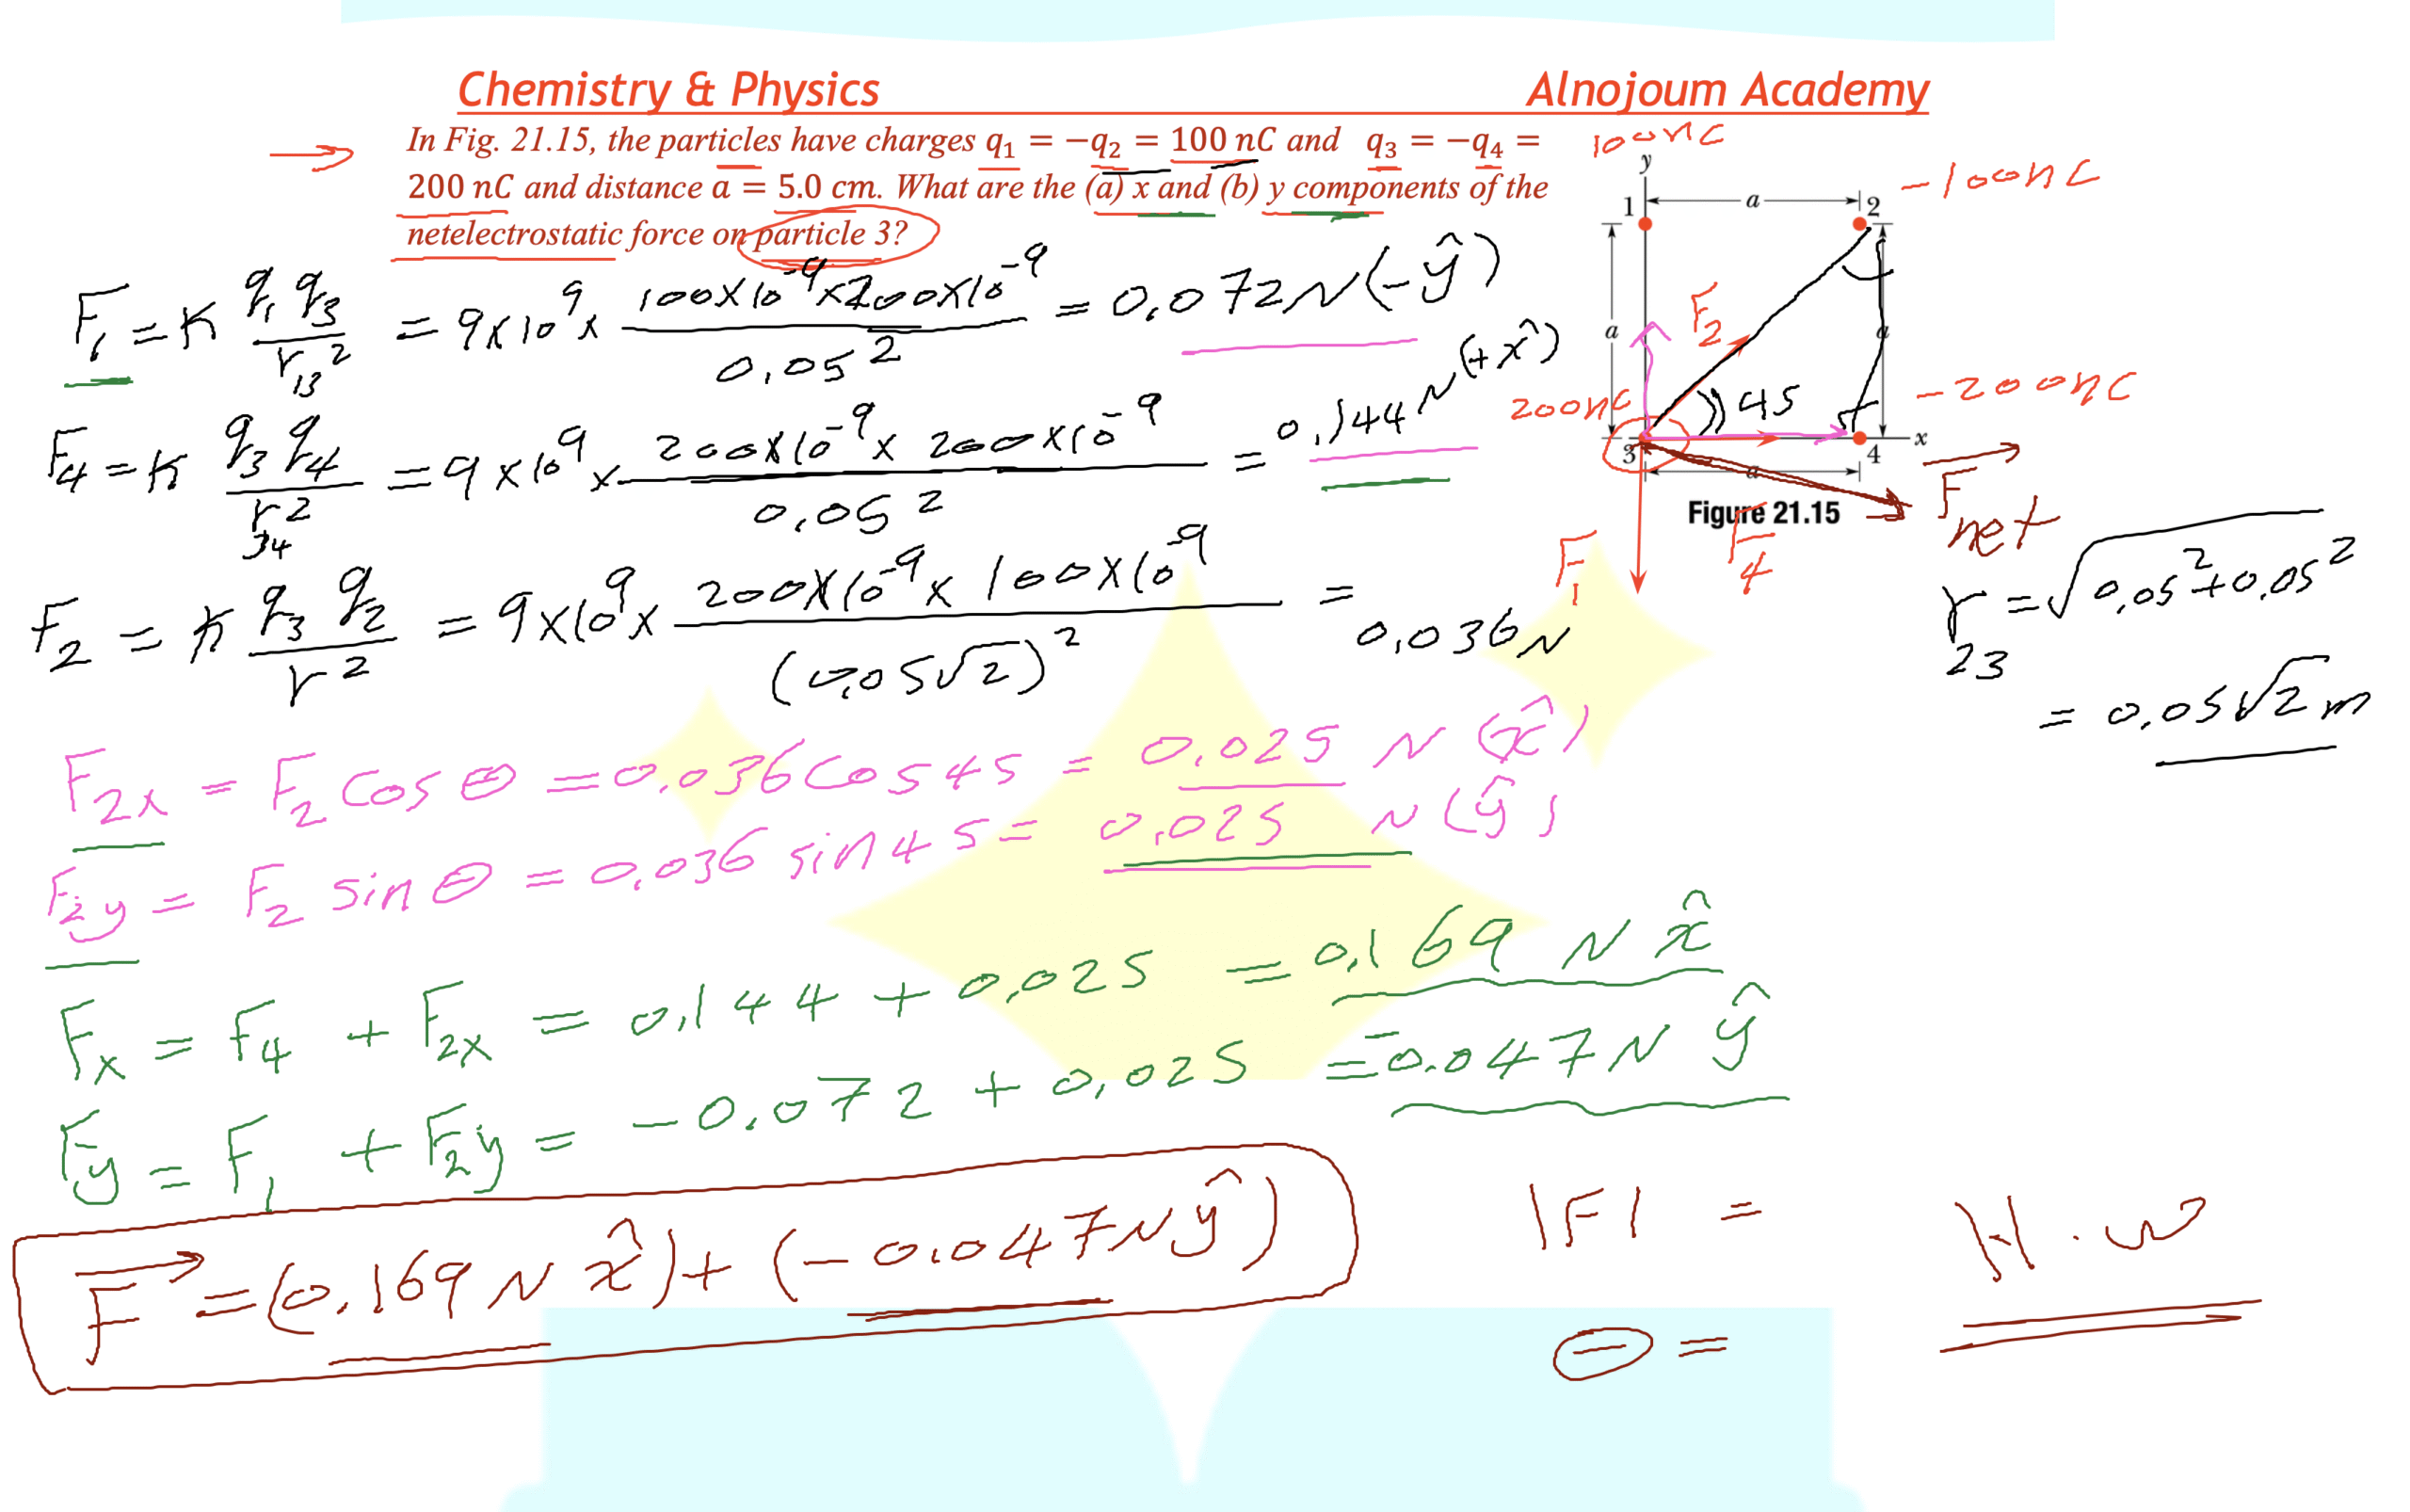 Chemistry & Physics Alnojoum Academy
In Fig. 21.15, the particles have charges q₁ = −q₂ = 100 nC and q₃ = −q₄ =
200 nC and distance a = 5.0 cm. What are the (a) x and (b) y components of the
netelectrostatic force on particle 3?
100nC
y
-100nC
1 a 2
a a
F₂
200nC 45 -200nC
3 4 x
a
Figure 21.15
F₁ F₄ F⃗net
F₁ = K q₁ q₃ / r₁₃² = 9x10⁹ x 100x10⁻⁹ x 200x10⁻⁹ / 0,05² = 0,072N(-ŷ)
F₄ = K q₃ q₄ / r₃₄² = 9x10⁹ x 200x10⁻⁹ x 200x10⁻⁹ / 0,05² = 0,144N (+x̂)
F₂ = K q₃ q₂ / r² = 9x10⁹ x 200x10⁻⁹ x 100x10⁻⁹ / (0,05√2)² = 0,036N
r₂₃ = √0,05² + 0,05²
= 0,05√2 m
F₂x = F₂ cos θ = 0,036 cos 45 = 0,025 N (x̂)
F₂y = F₂ sin θ = 0,036 sin 45 = 0,025 N (ŷ)
Fx = F₄ + F₂x = 0,144 + 0,025 = 0,169 N x̂
Fy = F₁ + F₂y = -0.072 + 0,025 = -0.047N ŷ
F⃗ = (0.169 N x̂) + (-0.047N ŷ)
|F| =
H.w
θ =